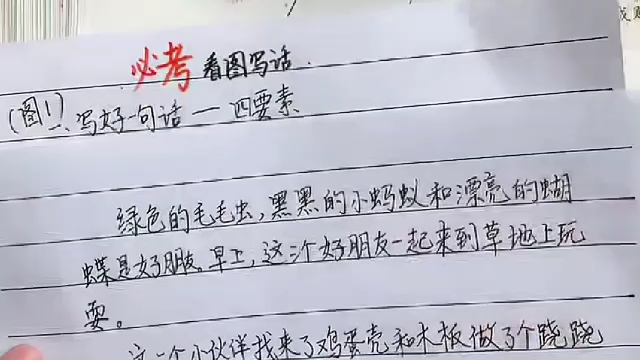 必考 看图写话
(图1)、写好一句话一四要素
绿色的毛毛虫,黑黑的小蚂蚁和漂亮的蝴
蝶是好朋友。早上,这三个好朋友一起来到草地上玩
耍。
这三个小伙伴找来了鸡蛋壳和木板做了个跷跷